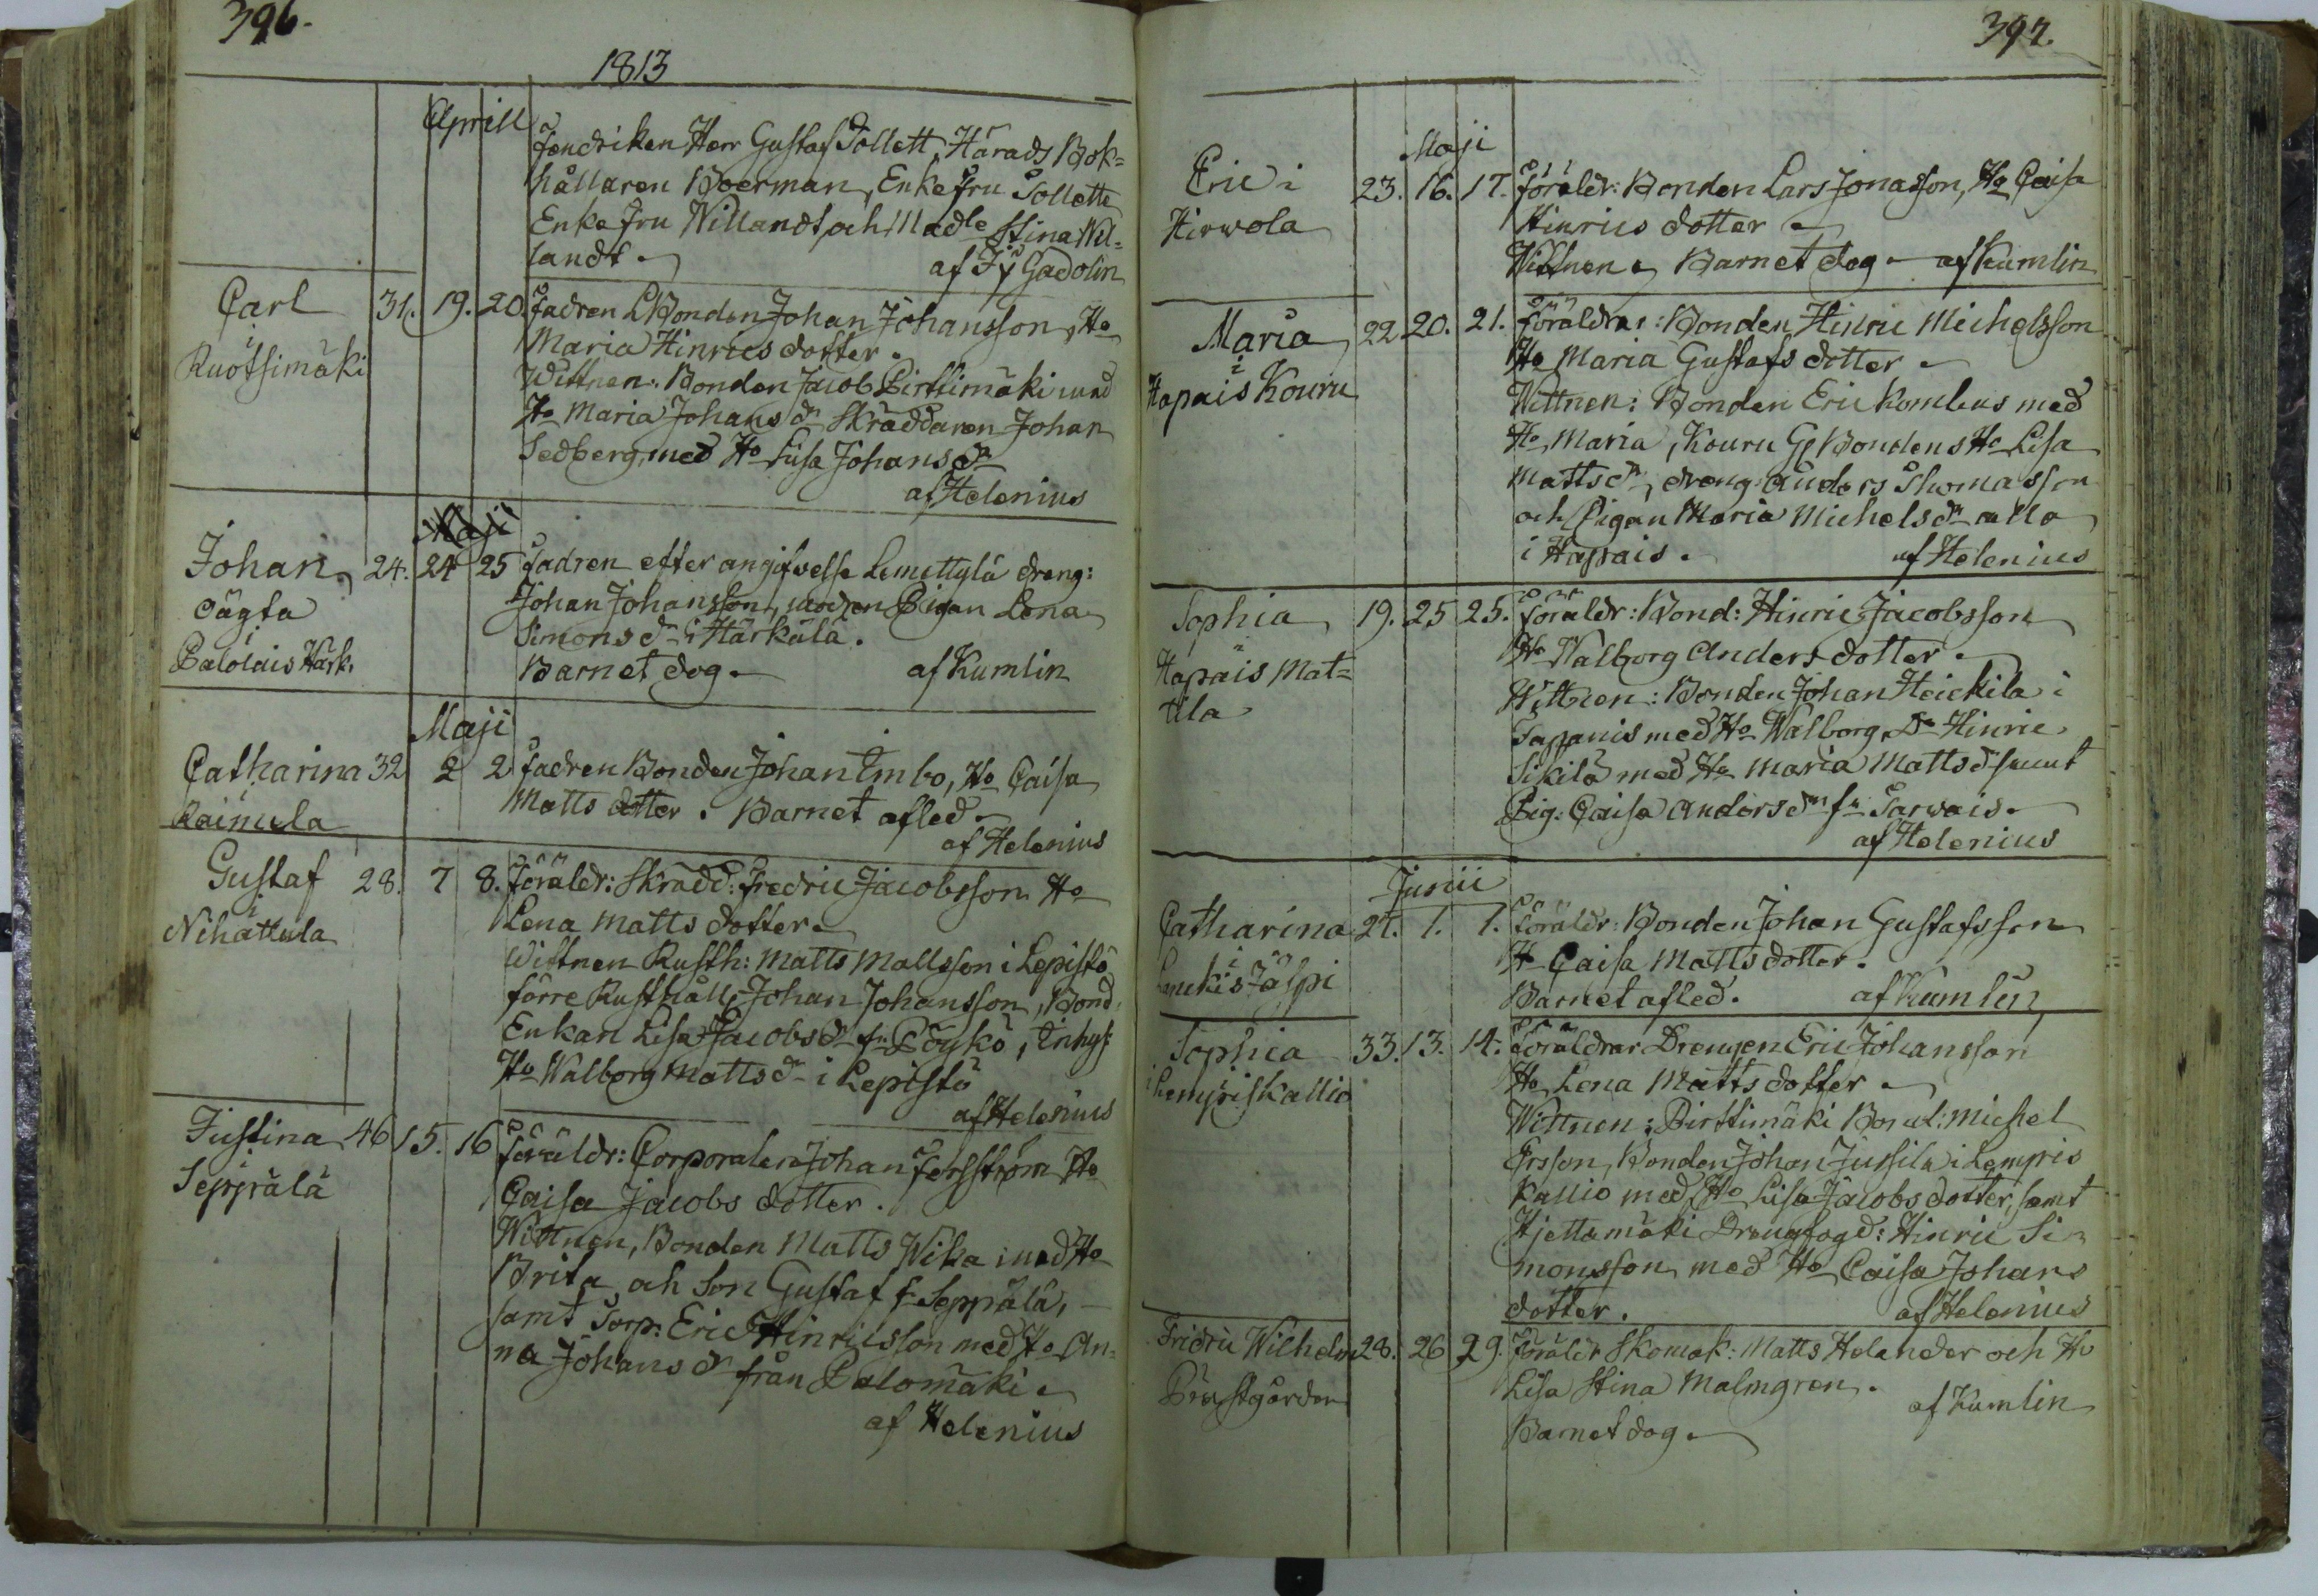 396.
1813
Aprill
Fendriken Herr Gustaf Tollett, Härads Bok=
hållaren Boerman, Enkefru Tollette
Enkefru Willandt, och Madle Stina Wil=
landt. af Gadolin
Carl 31. 19. 20. Fadren Bonden Johan Johansson, Ho
i
Ruotsimäki
Maria Hinrics dotter.
Wittnen: Bonden Jacob Pirttimäki med
Ho Maria Johans dr Skräddaren Johan
Sedberg, med Ho Lisa Johans dr
af Helenius
Maji
Johan, 24. 24 25 Fadren efter angifvelse Lemettylä dreng:
oägta
Johan Johansson, modren Pigan Lena
i
Simons dr i Härkälä.
Palolais Härk.
Barnet dog. af Kumlin
Maji
Catharina 32 2 2 Fadren Bonden Johan Imbo, Ho Caisa
i
Raimela
Matts dotter. Barnet afled.
af Helenius
Gustaf 28. 7 8. Föräldr: Skrädd: Fredric Jacobsson Ho
i
Nihattula
Lena Matts dotter.
Wittnen Rusth: Matts Mattsson i Lepistö
förre Rusthåll. Johan Johansson, Bond.
Enkan Lisa Jacobs dr fr Pöykö, Inhys:
Ho Walborg Matts dr i Lepistö
af Helenius
Justina 46 15. 16 Föräldr: Corporalen Johan Forsström Ho
i
Seppälä
Caisa Jacobs dotter.
Wittnen, Bonden Matts Wika med Ho
Brita, och Son Gustaf fr Seppälä,
samt Torp: Eric Hinricsson med Ho An=
na Johans dr från Palomäki.
af Helenius
397.
Maji
Eric i 23. 16. 17. Föräldr: Bonden Lars Jonasson, Ho Caisa
Hirwola
Hinrics dotter
Wittnen Barnet dog. af Kumlin
Maria 22 20. 21. Föräldrar: Bonden Hinric Michelsson
i
Hapais Kouru
Ho Maria Gustafs dotter.
Wittnen: Bonden Eric med
Ho Maria, Kouru Bondens Ho Lisa
Matts dr, dreng: Anders Thomasson
och Pigan Maria Michels dr alla
i Hapais. af Helenius
Sophia 19. 25 25. Föräldr: Bond: Hinric Jacobsson
Hapais Mat=
tila
Ho Walborg Anders dotter.
Wittnen: Bonden Johan Heickilä i
med Ho Walborg, Do Hinric
Sikilä med Ho Maria Matts dr samt
Pig: Caisa Anders dr fr Sarwais.
af Helenius
Junii
Catharina 27. 1. 1. Föräldr: Bonden Johan Gustafsson
i
Ho Caisa Matts dotter.
Barnet afled. af Kumlin
Sophia 33. 13. 14. Föräldrar Drengen Eric Johansson
i Lempiskallio
Ho Lena Matts dotter.
Wittnen: Pirttimäki Bond: Michel
Ersson, Bonden Johan Jussila i Lempis
Kallio med Ho Lisa Jacobs dotter, samt
Hjettamäki Drengfogd: Hinric Si=
monsson med Ho Caisa Johans
dotter. af Helenius
Fridric Wilhelm 28. 26 29. Föräldr Skomak: Matts Helander och Ho
Prästgården
Lisa Stina Malmgren. af Kumlin
Barnet dog.